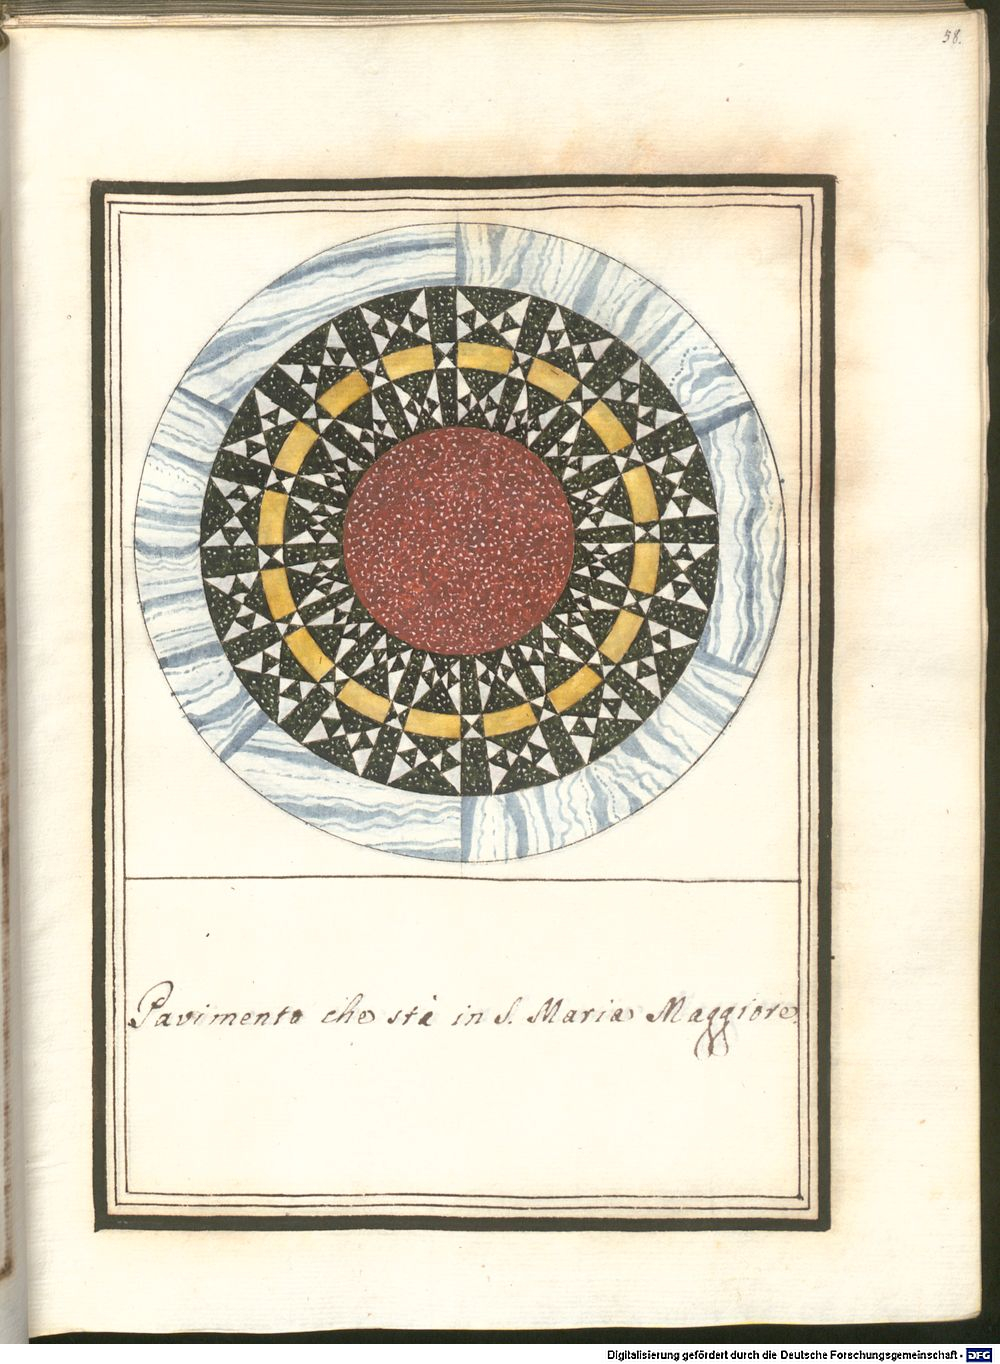 58.
Pavimento che stà in S. Maria Maggiore.
Digitalisierung gefördert durch die Deutsche Forschungsgemeinschaft - DFG